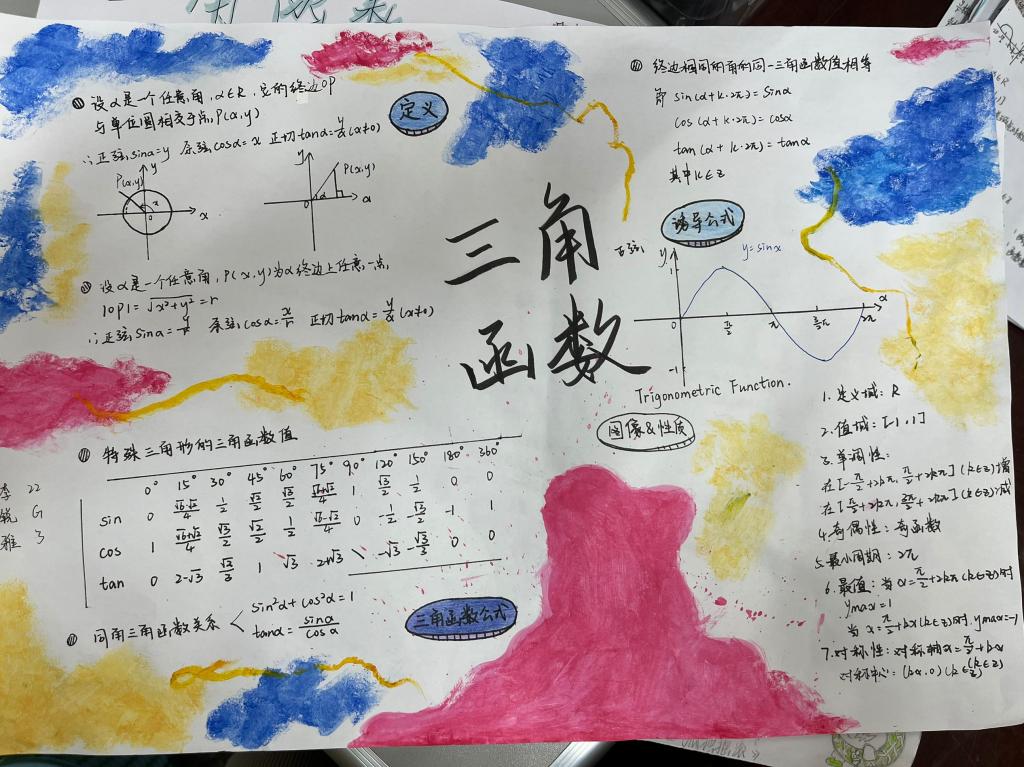 三角
函数
定义
设α是一个任意角,α∈R,它的终边OP
与单位圆相交于点P(x,y)
∴正弦sinα=y 余弦cosα=x 正切tanα=y/x(x≠0)
P(x,y)
y
x
0
y
P(x,y)
α
0
x
设α是一个任意角,P(x,y)为α终边上任意一点,
|OP|=√x²+y²=r
∴正弦sinα=y/r 余弦cosα=x/r 正切tanα=y/x(x≠0)
特殊三角形的三角函数值
0° 15° 30° 45° 60° 75° 90° 120° 150° 180° 360°
sin 0 √6-√2/4 1/2 √2/2 √3/2 √6+√2/4 1 √3/2 1/2 0 0
cos 1 √6+√2/4 √3/2 √2/2 1/2 √6-√2/4 0 -1/2 -√3/2 -1 1
tan 0 2-√3 √3/3 1 √3 2+√3 \ -√3 -√3/3 0 0
同角三角函数关系 < sin²α+cos²α=1
tanα=sinα/cosα
三角函数公式
李 22
G
雅 3
终边相同的角的同一三角函数值相等
即 sin(α+k·2π)=sinα
cos(α+k·2π)=cosα
tan(α+k·2π)=tanα
其中k∈Z
诱导公式
正弦:
y
y=sinx
1
0
π/2
π
3/2π
2π
x
-1
Trigonometric Function.
图像&性质
1.定义域:R
2.值域:[-1,1]
3.单调性:
在[-π/2+2kπ,π/2+2kπ](k∈Z)增
在[π/2+2kπ,3π/2+2kπ](k∈Z)减
4.奇偶性:奇函数
5.最小周期:2π
6.最值:当x=π/2+2kπ(k∈Z)时
ymax=1
当x=π/2+kπ(k∈Z)时,ymax=-1
7.对称性:对称轴x=π/2+kπ
(k∈Z)
对称中心:(kπ,0)(k∈Z)